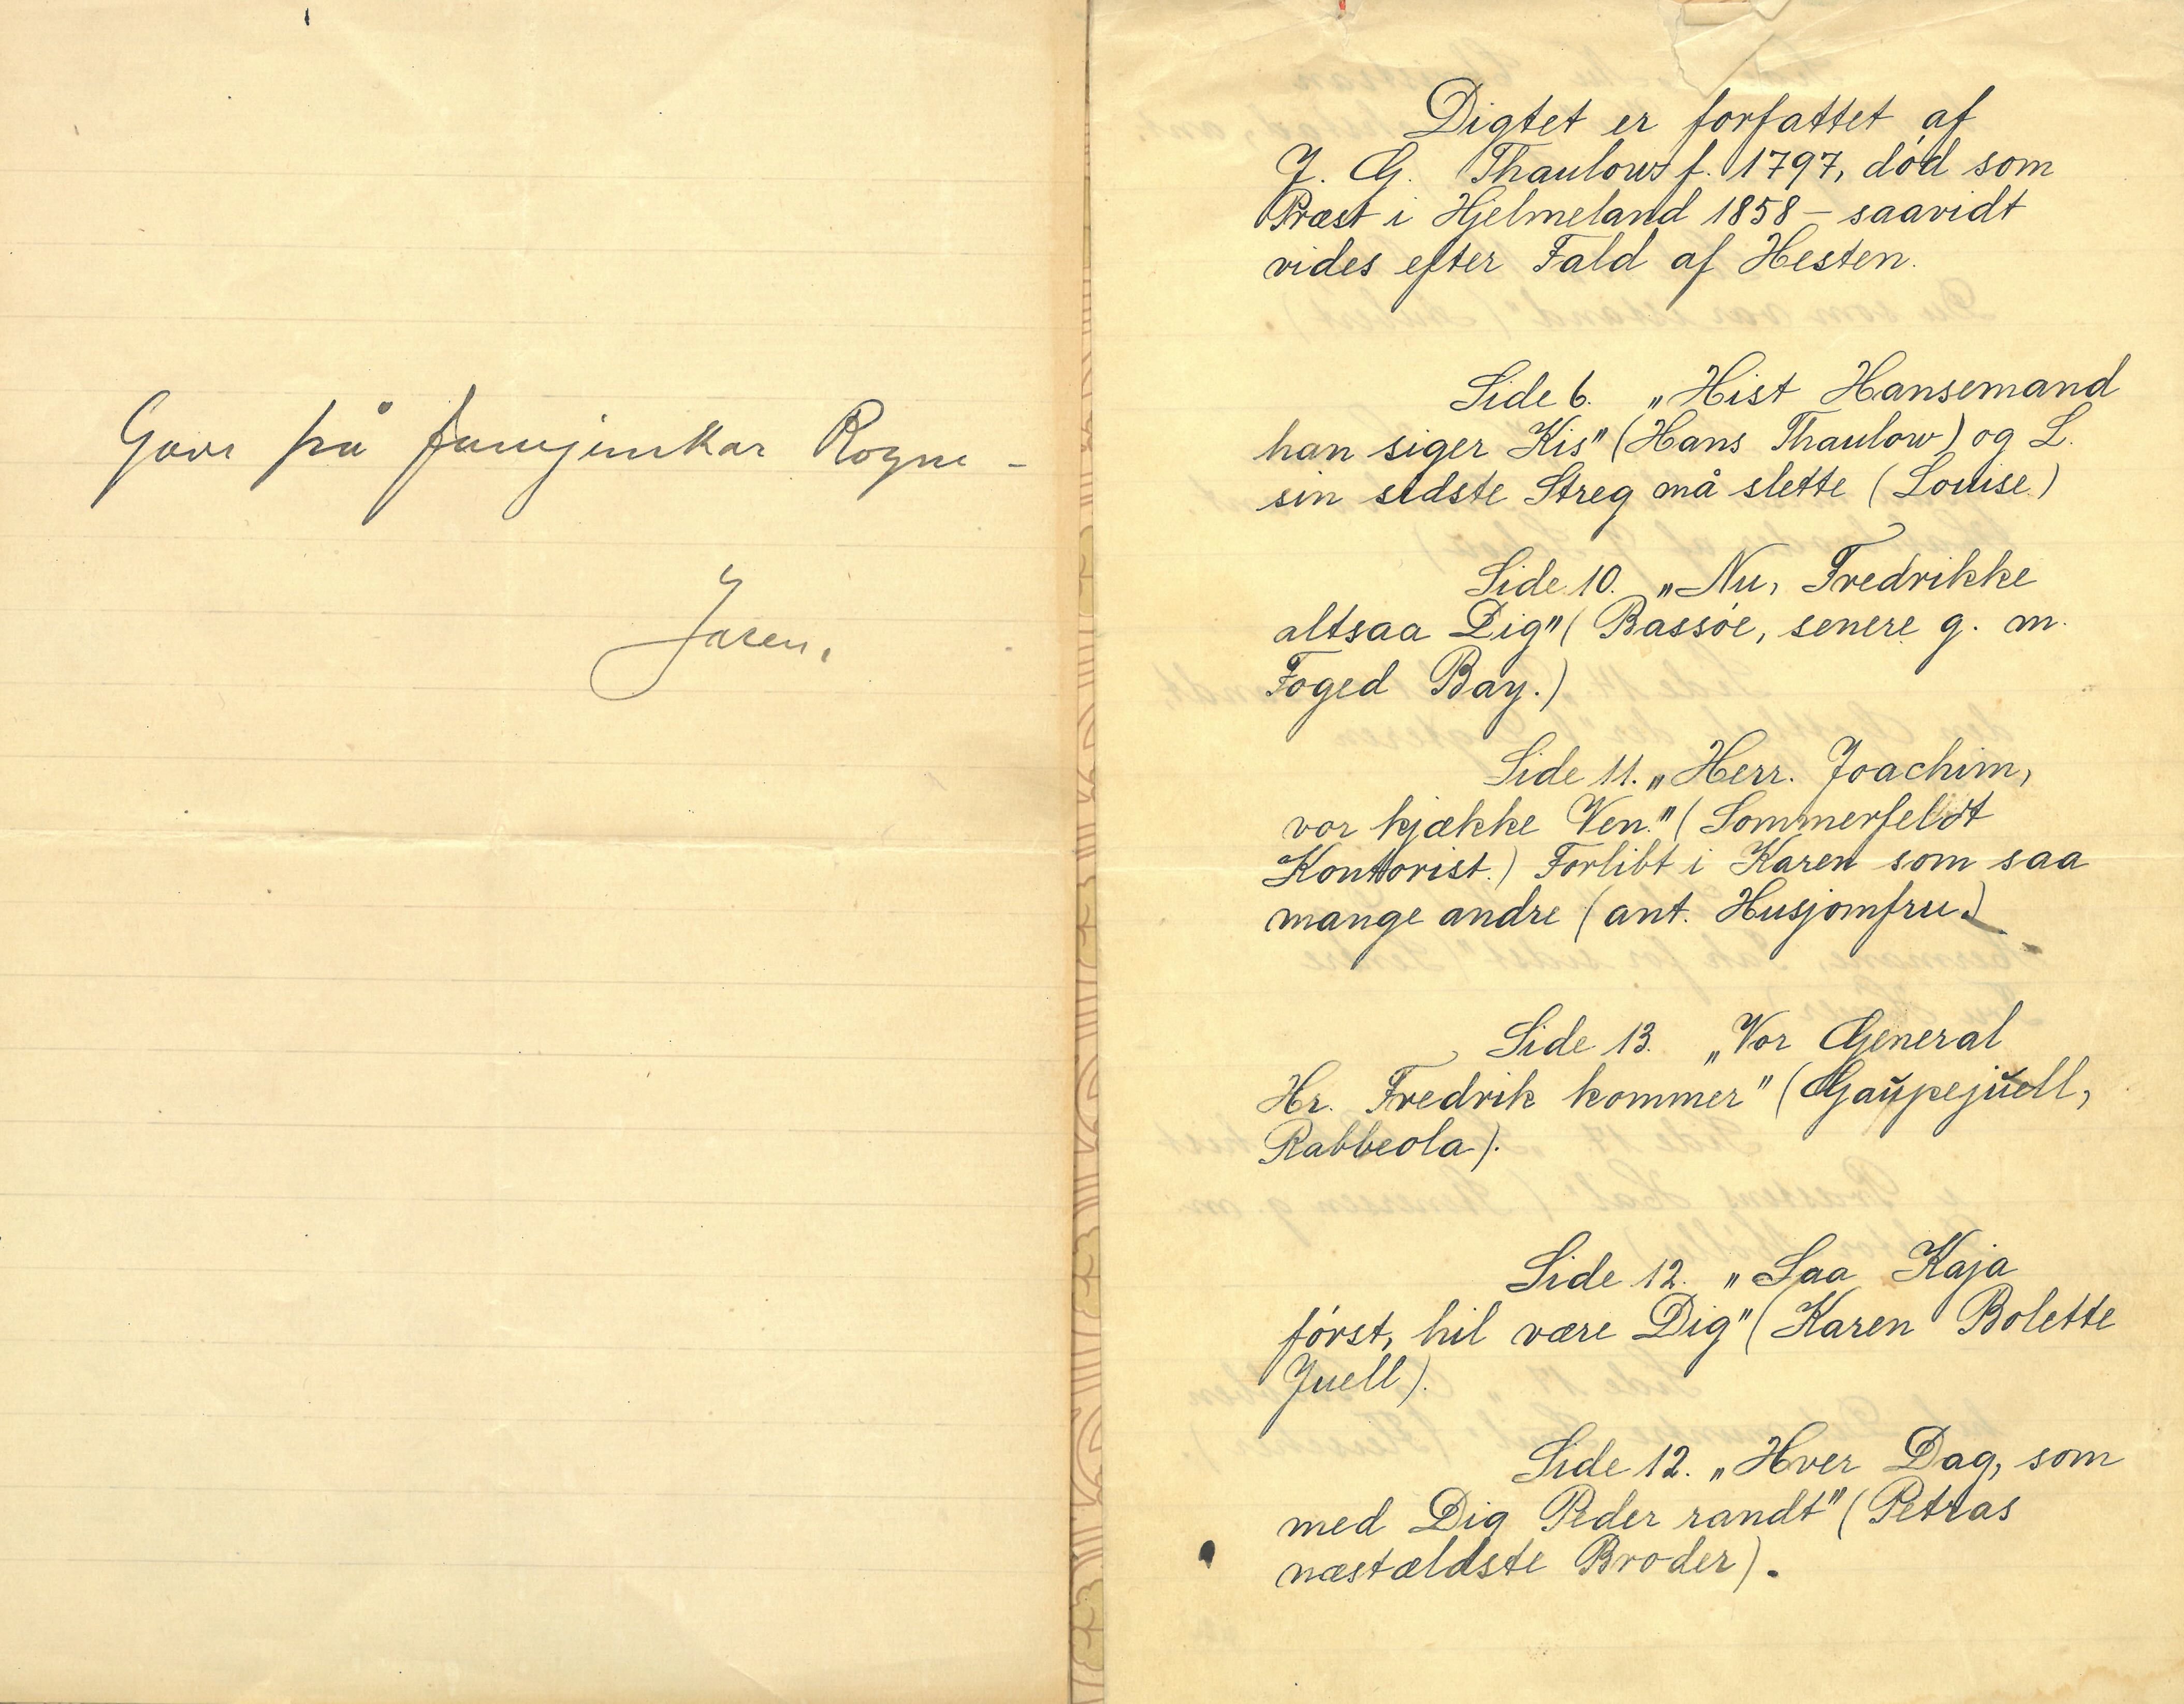 Gave frå funnjunkar Rogne -
Jaren.
Digtet er forfattet af
J. G. Thaulow f. 1797, död som
Præst i Hjelmeland 1858 - saavidt
vides efter Fald af Hesten.
Side 6. „Hist Hansemand
han siger Kis" (Hans Thaulow) og L.
sin sidste Streg må slette (Louise)
Side 10. „Nu, Fredrikke
altsaa Dig" (Bassöe, senere g. m.
Foged Bay.)
Side 11. „Herr. Joachim,
vor kjække Ven." (Sommerfeldt
Kontorist.) Forlibt i Karen som saa
mange andre (ant. Husjomfru.)
Side 13. „Vor General
Hr. Fredrik kommer" (Gaŭpejŭell,
Rabbeola).
Side 12. „Saa Kaja
först, hil være Dig" (Karen Bolette
Juell).
Side 12. „Hver Dag, som
med Dig Peder randt" (Petras
næstældste Broder).